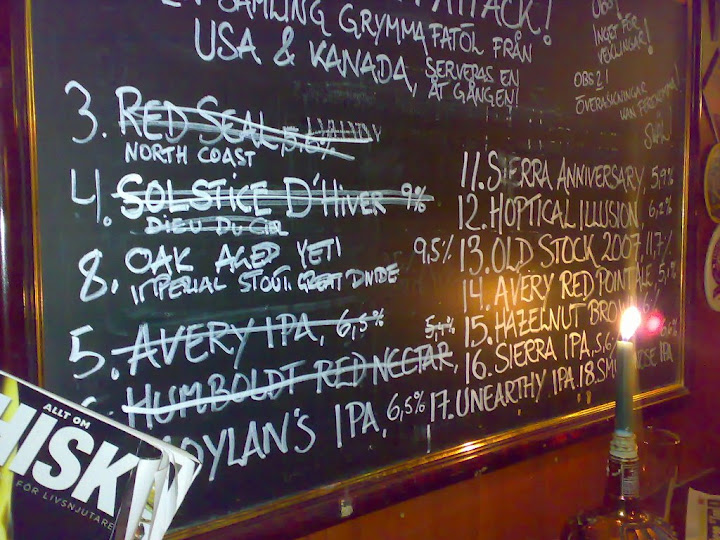 EN SAMLING GRYMMA FATÖL FRÅN
USA & KANADA, SERVERAS EN
ÅT GÅNGEN!
OBS!
INGET FÖR
VEKLINGAR!
OBS 2!
ÖVERRASKNINGAR
KAN FÖREKOMMA!
SKÅL!
3. RED SEAL, 5.6%
NORTH COAST
4. SOLSTICE D'HIVER 9%
DIEU DU CIEL
8. OAK AGED YETI 9,5%
IMPERIAL STOUT. GREAT DIVIDE
5. AVERY IPA, 6,5%
HUMBOLDT RED NECTAR, 5,4%
MOYLAN'S IPA, 6,5%
11. SIERRA ANNIVERSARY, 5,9%
12. HOPTICAL ILLUSION, 6,2%
13. OLD STOCK 2007, 11,7%
14. AVERY RED POINT ALE, 5,1%
15. HAZELNUT BROWN
16. SIERRA IPA, 5,6%
17. UNEARTHY IPA. 18. IPA
ALLT OM
WHISKY
FÖR LIVSNJUTARE